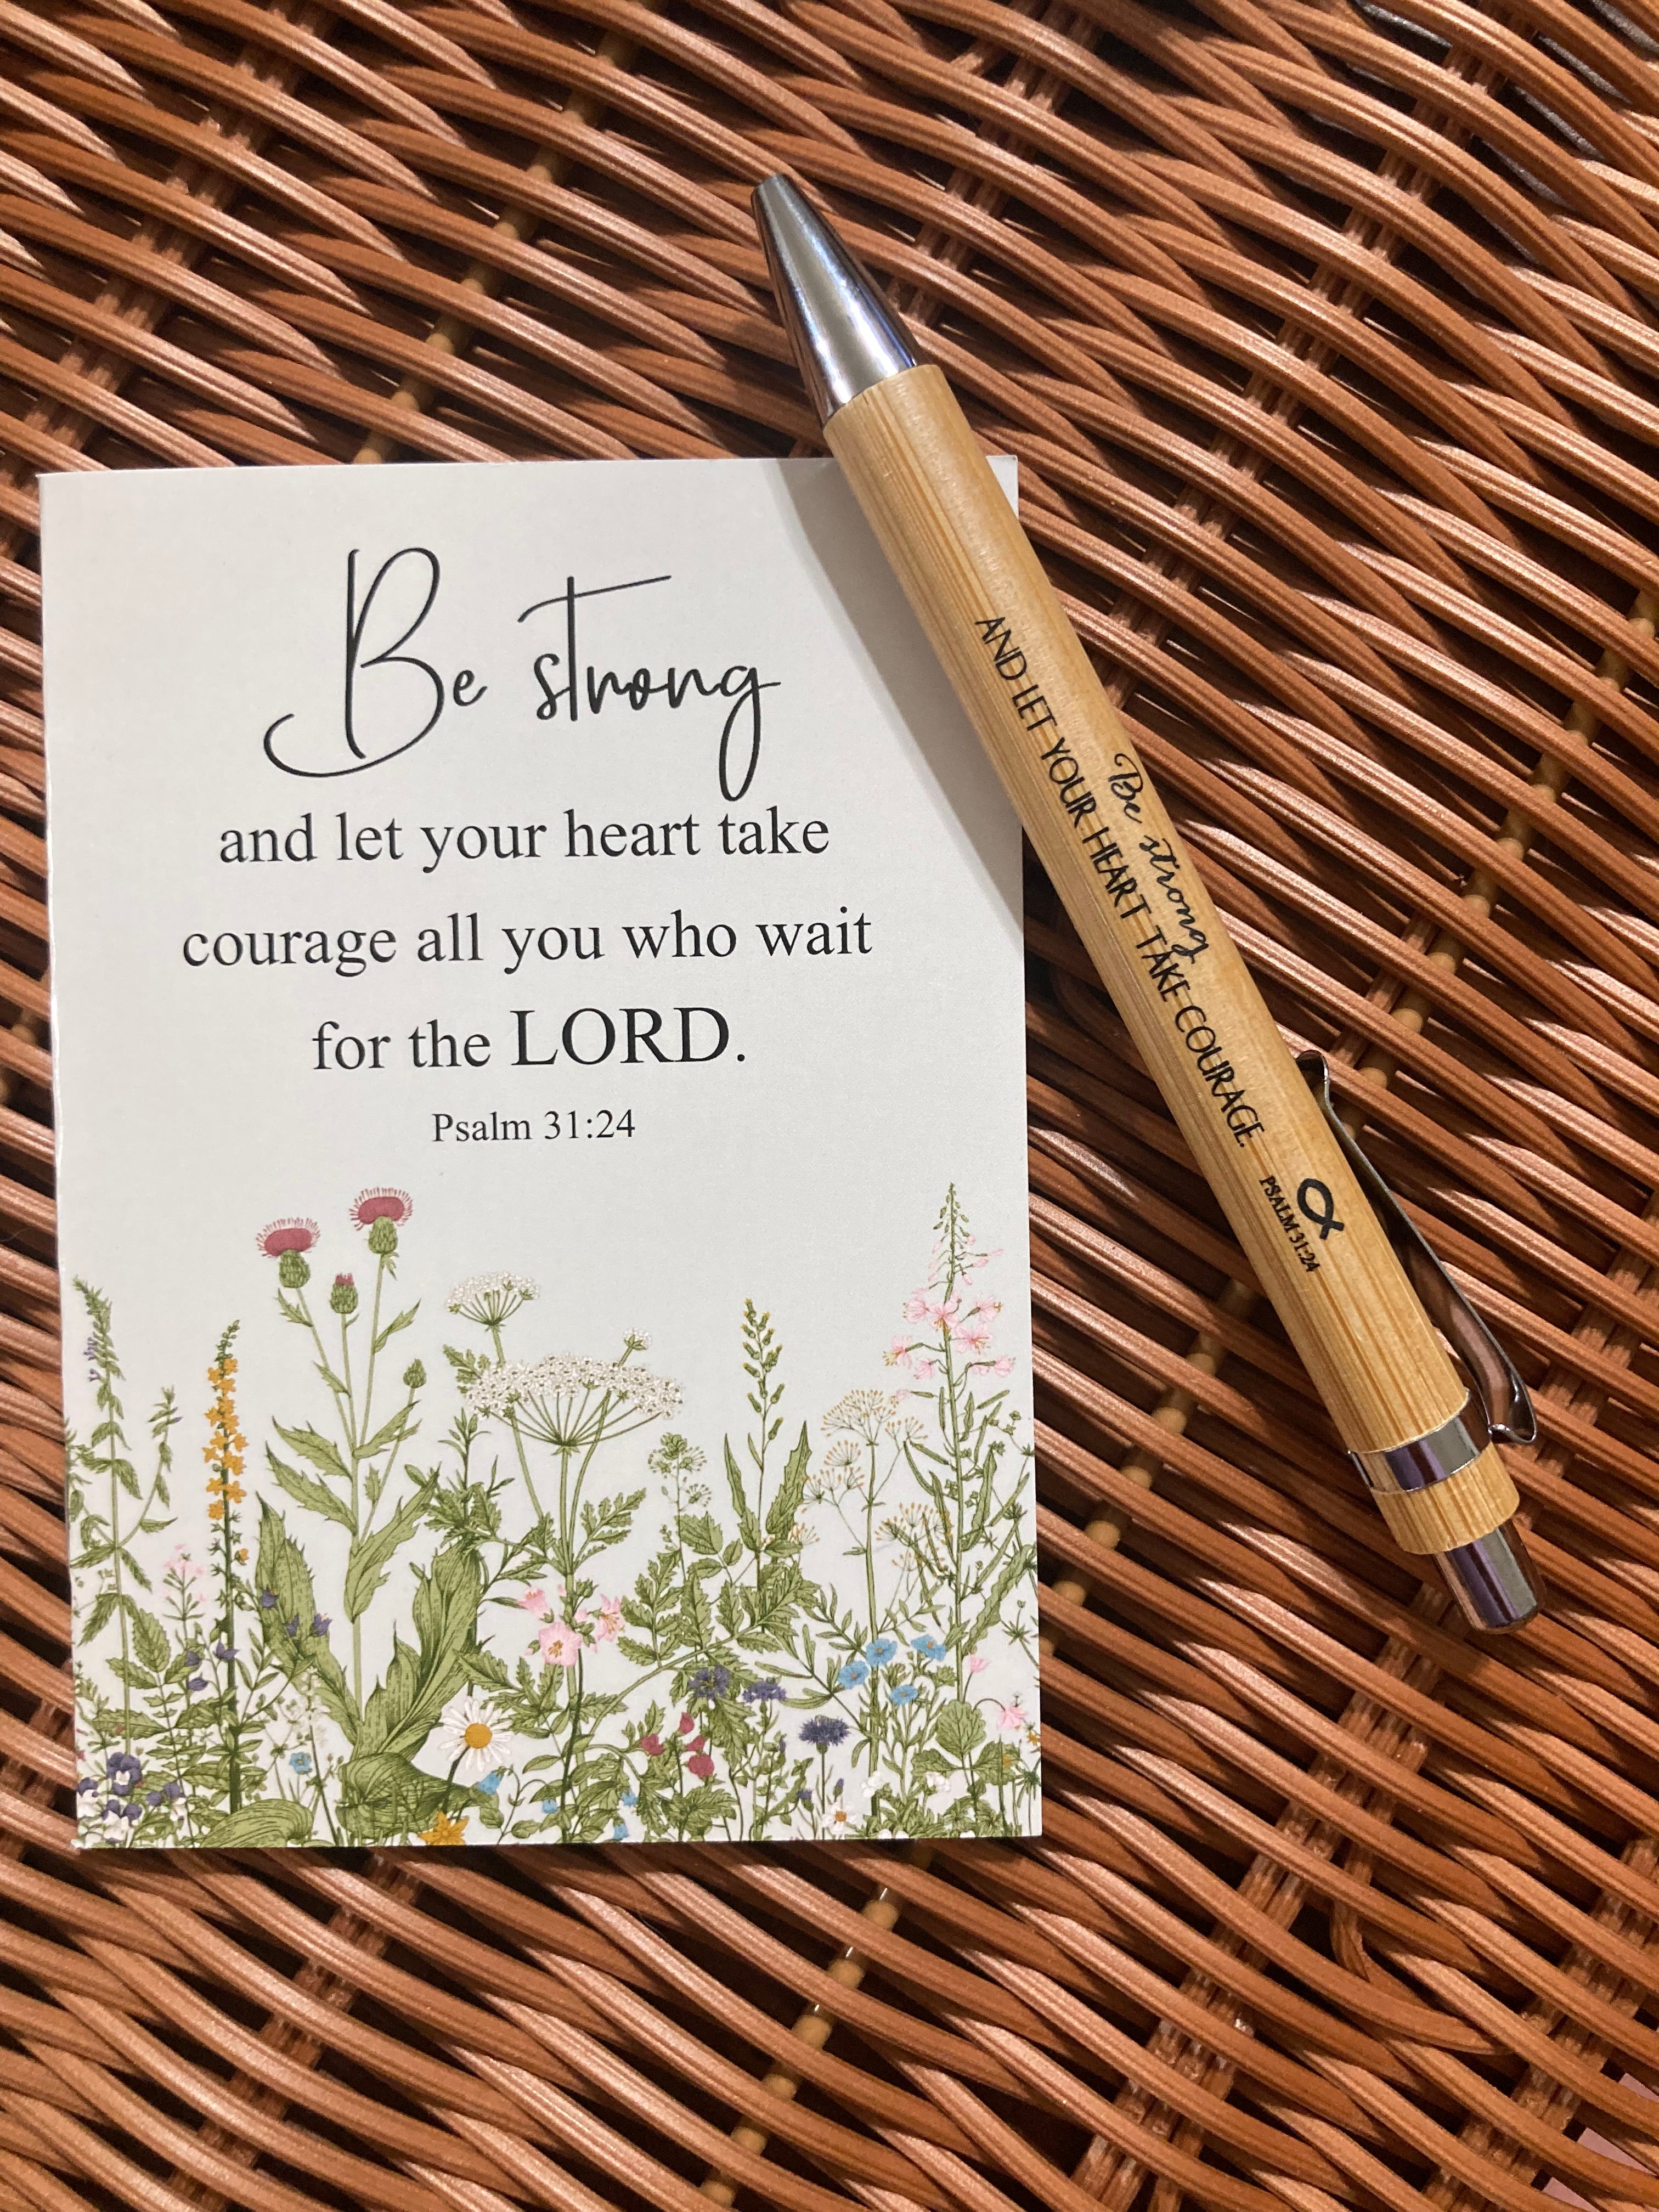 Be strong
and let your heart take
courage all you who wait
for the LORD.
Psalm 31:24
Be strong
AND LET YOUR HEART TAKE COURAGE.
PSALM 31:24